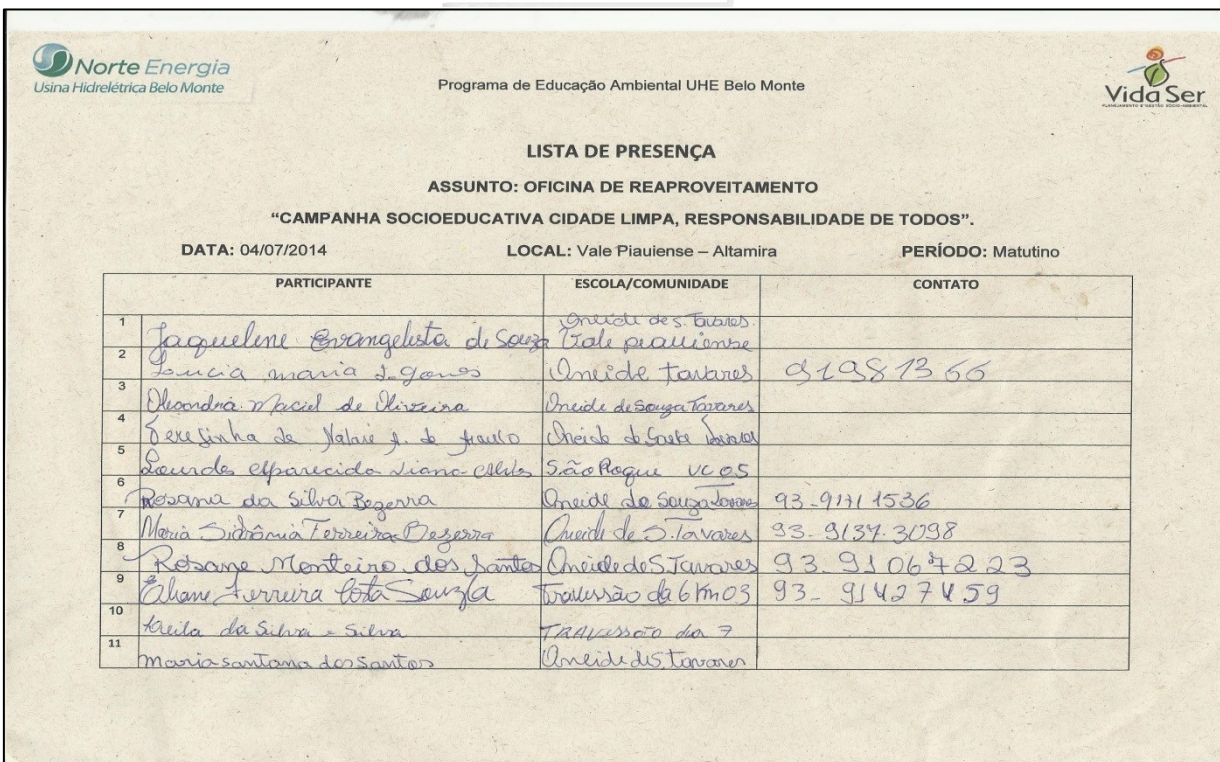 Norte Energia
Usina Hidrelétrica Belo Monte
Programa de Educação Ambiental UHE Belo Monte
Vida Ser
PLANEJAMENTO E GESTÃO SÓCIO-AMBIENTAL
LISTA DE PRESENÇA
ASSUNTO: OFICINA DE REAPROVEITAMENTO
“CAMPANHA SOCIOEDUCATIVA CIDADE LIMPA, RESPONSABILIDADE DE TODOS”.
DATA: 04/07/2014 LOCAL: Vale Piauiense – Altamira PERÍODO: Matutino
PARTICIPANTE ESCOLA/COMUNIDADE CONTATO
Oneide de S. Tavares.
1 Jaquelene Evangelista de Souza Vale piauiense
2 Lucia maria Oneide tavares 91981366
3 Maciel de Oliveira Oneide de Souza Tavares
4 Teresinha de Oneide de
5 Lourdes Aparecida Viana São Roque VC 05
6 Rosana da Silva Bezerra Oneide de Souza Tavares 93-9171 1536
7 Maria Sidrônia Ferreira Bezerra Oneide de S. Tavares 93-9137.3098
8 Rosane Monteiro dos Santos Oneide de S. Tavares 93-91067223
9 Eliane Ferreira Costa Souza Travessão da 6 Km 03 93-91427459
10 da Silva e Silva TRAVESSÃO da 7
11 maria santana dos Santos Oneide de S. tavares